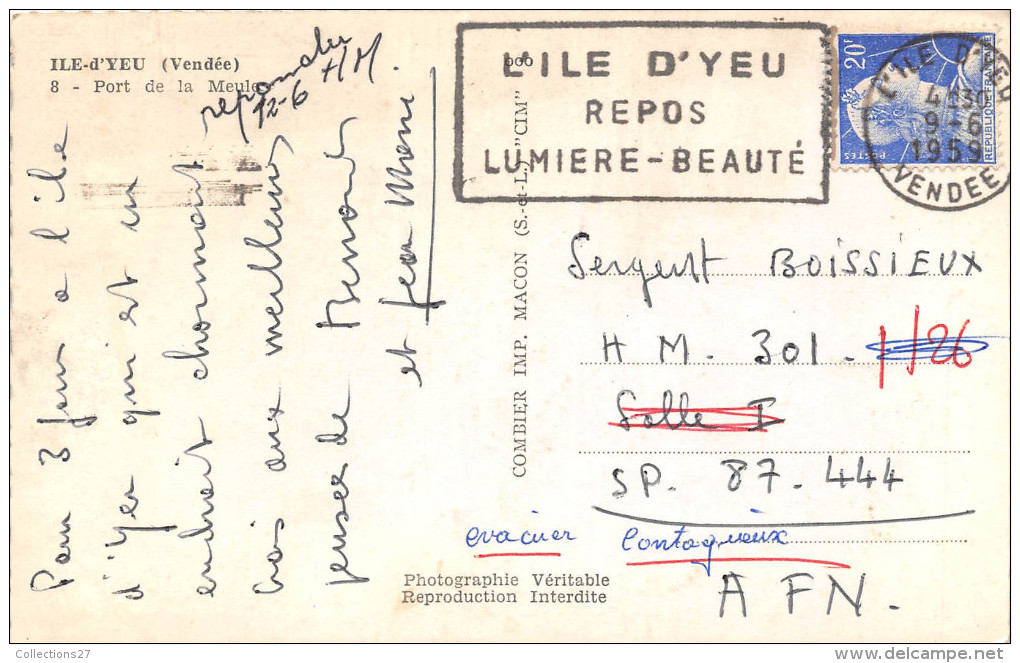 ILE-d'YEU (Vendée)
8 - Port de la Meule
repondu
12-6 HM.
Pour 3 jours a l'ile
d'Yeu qui est un
endroit charmant
Crois aux meilleures
pensées de
et Jean
COMBIER IMP. MACON (S.-et-L.) "CIM"
L'ILE D'YEU
REPOS
LUMIERE-BEAUTÉ
20F
POSTES
REPUBLIQUE FRANÇAISE
L'ILE D'YEU
4 H30
9-6
1959
VENDEE
Sergent BOISSIEUX
H M. 301. 1/26
Salle I
SP. 87.444
evacuer Contagieux
A FN.
Photographie Véritable
Reproduction Interdite
Collections27
delcampe.net